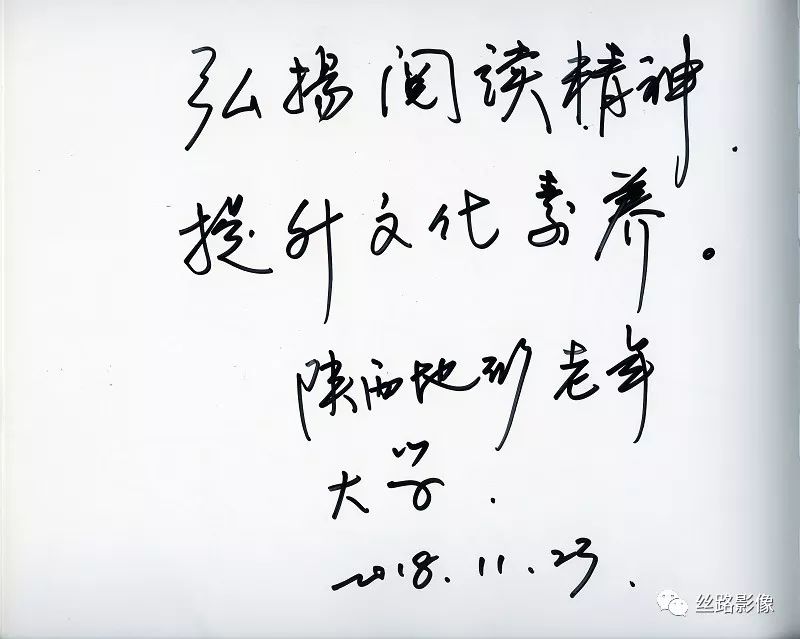 弘揚阅读精神.
提升文化素养。
陕西地矿老年
大学.
2018.11.23.
丝路影像